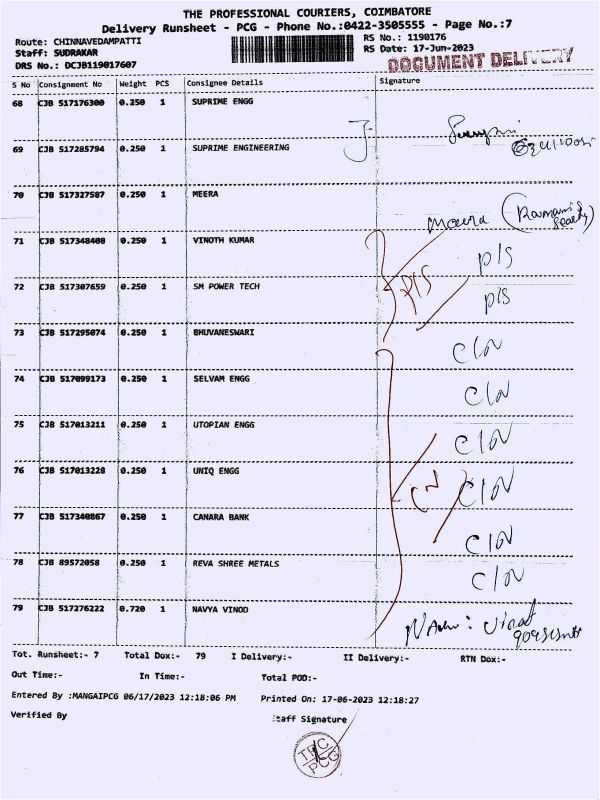 THE PROFESSIONAL COURIERS, COIMBATORE
Delivery Runsheet - PCG - Phone No.:0422-3505555 - Page No.:7
Route: CHINNAVEDAMPATTI RS No.: 1190176
Staff: SUDRAKAR RS Date: 17-Jun-2023
DRS No.: DCJB119017607 DOCUMENT DELIVERY
S No Consignment No Weight PCS Consignee Details Signature
68 CJB 517176300 0.250 1 SUPRIME ENGG
69 CJB 517285794 0.250 1 SUPRIME ENGINEERING
70 CJB 517327587 0.250 1 MEERA
Meera
71 CJB 517348408 0.250 1 VINOTH KUMAR P/S
72 CJB 517307659 0.250 1 SM POWER TECH P/S P/S
73 CJB 517295074 0.250 1 BHUVANESWARI C/N
74 CJB 517099173 0.250 1 SELVAM ENGG C/N
75 CJB 517013211 0.250 1 UTOPIAN ENGG C/N
76 CJB 517013228 0.250 1 UNIQ ENGG CN C/N
77 CJB 517340867 0.250 1 CANARA BANK C/N
78 CJB 89572058 0.250 1 REVA SHREE METALS C/N
79 CJB 517276222 0.720 1 NAVYA VINOD
Tot. Runsheet:- 7 Total Dox:- 79 I Delivery:- II Delivery:- RTN Dox:-
Out Time:- In Time:- Total POD:-
Entered By :MANGAIPCG 06/17/2023 12:18:06 PM Printed On: 17-06-2023 12:18:27
Verified By Staff Signature
TPC
PCG